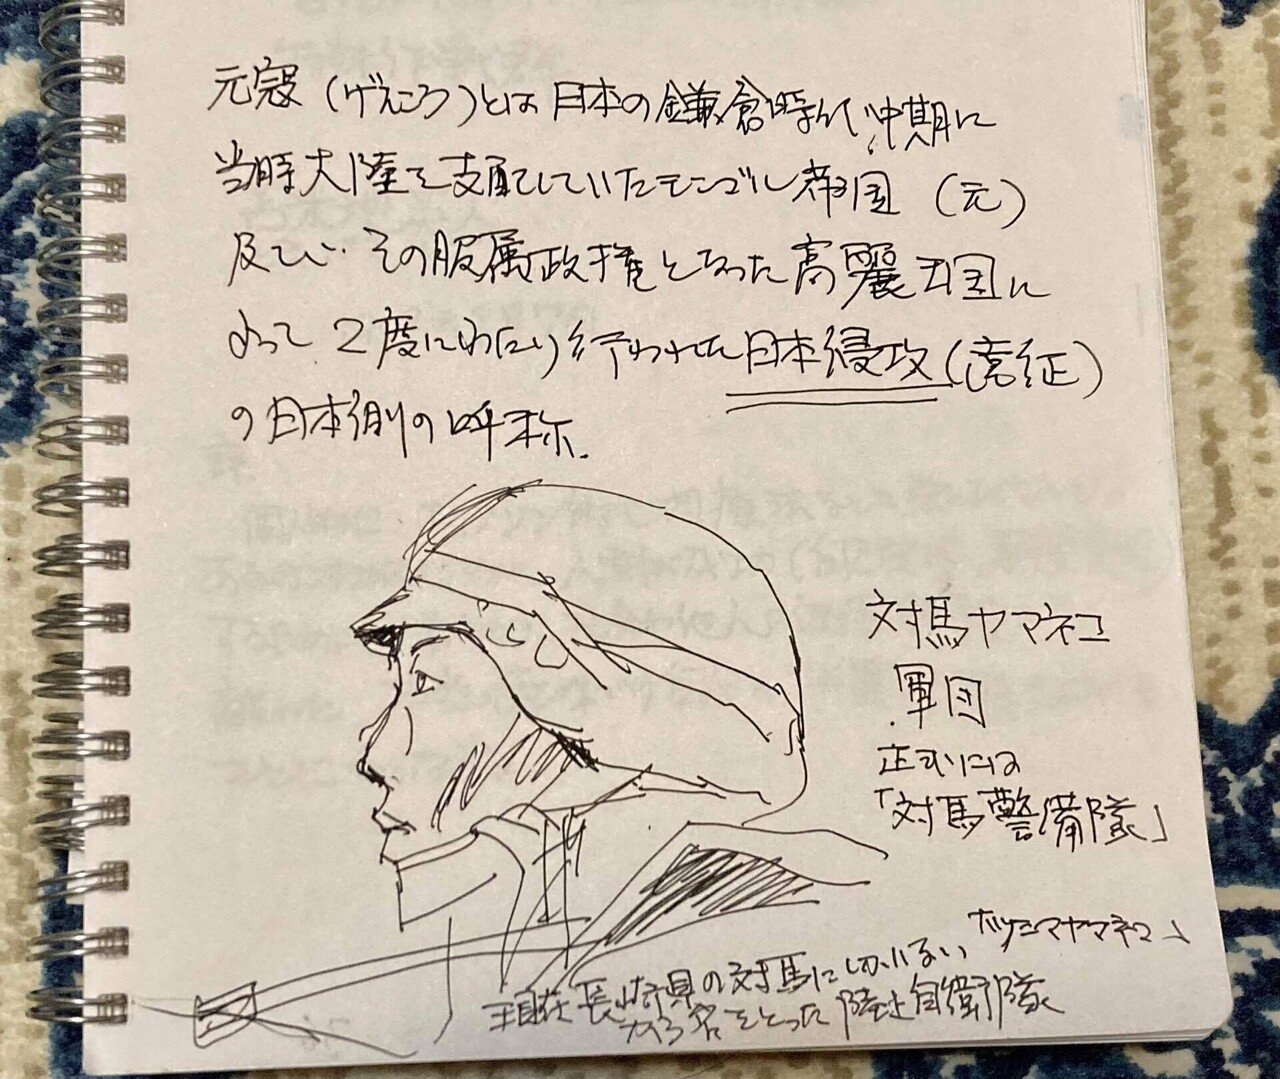 元寇(げんこう)とは日本の鎌倉時代中期に
当時大陸を支配していたモンゴル帝国(元)
及びその服属政権となった高麗王国に
よって2度にわたり行われた日本侵攻(遠征)
の日本側の呼称.
対馬ヤマネコ
軍団
正式には
「対馬警備隊」
現在長崎県の対馬にしかいない"ツシマヤマネコ"
から名をとった陸上自衛隊